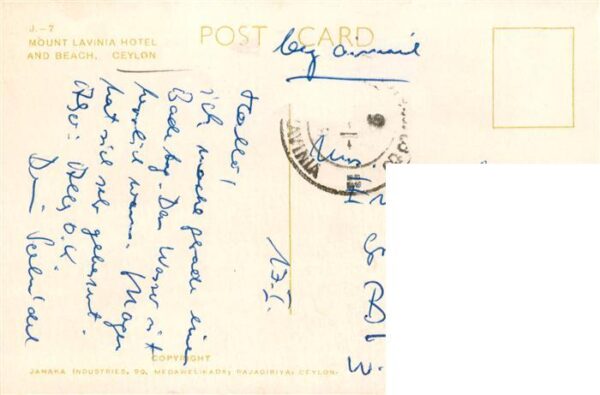 J.-7
MOUNT LAVINIA HOTEL
AND BEACH, CEYLON
POST CARD
by airmail
Hallo,
ich mache gerade einen
Badetag. Das Wasser ist
herrlich warm. Magen
hat sich sehr gebessert.
Also: Alles O.K.
Dein
13.I.
LAVINIA
COPYRIGHT
JANAKA INDUSTRIES, 90, MEDAWELIKADA, RAJAGIRIYA, CEYLON.